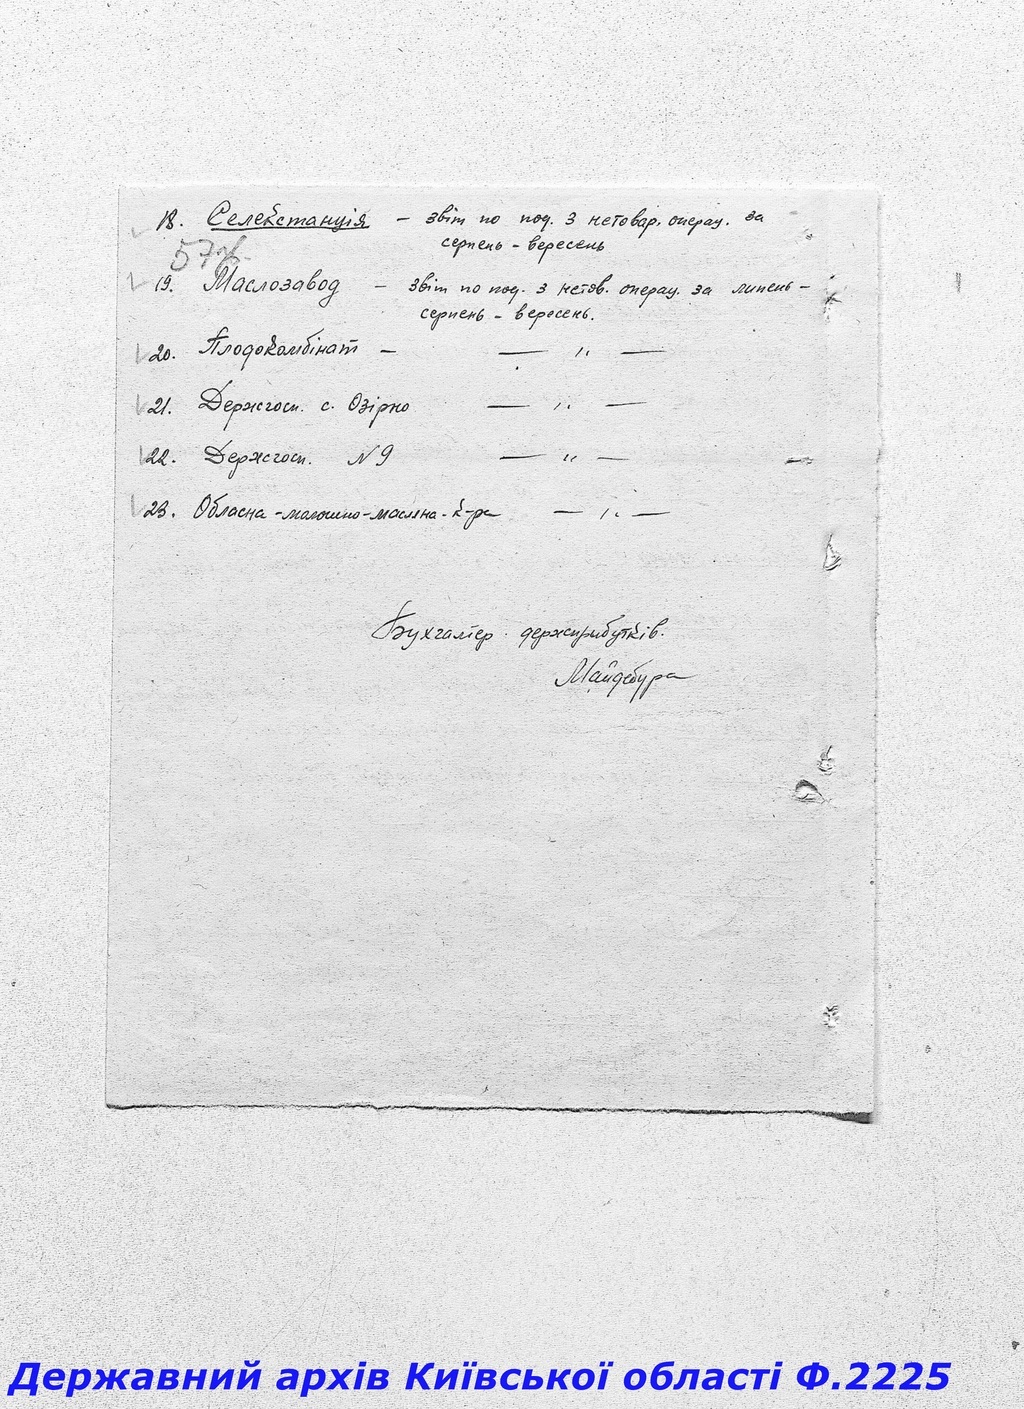 18. Селекстанція – звіт по под. з нетовар. операц. за
серпень – вересень
57
19. Маслозавод – звіт по под. з нетов. операц. за липень –
серпень – вересень.
20. Плодокомбінат – — " —
21. Держгосп. с. Озірно — " —
22. Держгосп. N 9 — " —
23. Обласна – молошно – масляна – к-ра — " —
Бухгалтер держприбутків.
Майдебура
Державний архів Київської області Ф.2225